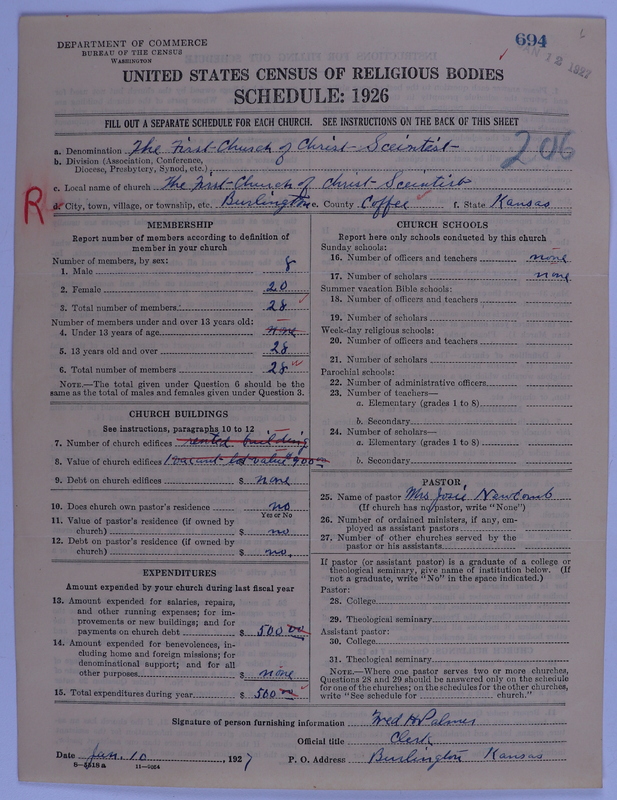 694
DEPARTMENT OF COMMERCE
BUREAU OF THE CENSUS
WASHINGTON
JAN 12 1927
UNITED STATES CENSUS OF RELIGIOUS BODIES
SCHEDULE: 1926
FILL OUT A SEPARATE SCHEDULE FOR EACH CHURCH. SEE INSTRUCTIONS ON THE BACK OF THIS SHEET
206
a. Denomination The First Church of Christ Sceintist
b. Division (Association, Conference,
Diocese, Presbytery, Synod, etc.)
c. Local name of church The First Church of Christ Sceintist
R
d. City, town, village, or township, etc. Burlington e. County Coffee f. State Kansas
MEMBERSHIP
Report number of members according to definition of
member in your church
Number of members, by sex:
1. Male 8
2. Female 20
3. Total number of members 28
Number of members under and over 13 years old:
4. Under 13 years of age none
5. 13 years old and over 28
6. Total number of members 28
NOTE.—The total given under Question 6 should be the
same as the total of males and females given under Question 3.
CHURCH BUILDINGS
See instructions, paragraphs 10 to 12
7. Number of church edifices rented building
8. Value of church edifices 1 vacant lot value $900
9. Debt on church edifices $ none
10. Does church own pastor's residence no
Yes or No
11. Value of pastor's residence (if owned by
church) $ no
12. Debt on pastor's residence (if owned by
church) $ no.
EXPENDITURES
Amount expended by your church during last fiscal year
13. Amount expended for salaries, repairs,
and other running expenses; for im-
provements or new buildings; and for
payments on church debt $ 500.00
14. Amount expended for benevolences, in-
cluding home and foreign missions; for
denominational support; and for all
other purposes $ none
15. Total expenditures during year $ 500.00
CHURCH SCHOOLS
Report here only schools conducted by this church
Sunday schools:
16. Number of officers and teachers none
17. Number of scholars none
Summer vacation Bible schools:
18. Number of officers and teachers
19. Number of scholars
Week-day religious schools:
20. Number of officers and teachers
21. Number of scholars
Parochial schools:
22. Number of administrative officers
23. Number of teachers—
a. Elementary (grades 1 to 8)
b. Secondary
24. Number of scholars—
a. Elementary (grades 1 to 8)
b. Secondary
PASTOR
25. Name of pastor Mrs Josie Newcomb
(If church has no pastor, write "None")
26. Number of ordained ministers, if any, em-
ployed as assistant pastors
27. Number of other churches served by the
pastor or his assistants
If pastor (or assistant pastor) is a graduate of a college or
theological seminary, give name of institution below. (If
not a graduate, write "No" in the space indicated.)
Pastor:
28. College
29. Theological seminary
Assistant pastor:
30. College
31. Theological seminary
NOTE.—Where one pastor serves two or more churches,
Questions 28 and 29 should be answered only on the schedule
for one of the churches; on the schedules for the other churches,
write "See schedule for church."
Signature of person furnishing information Fred H Palmer
Official title Clerk
Date Jan. 10, 1927 P. O. Address Burlington Kansas
8-5518 a